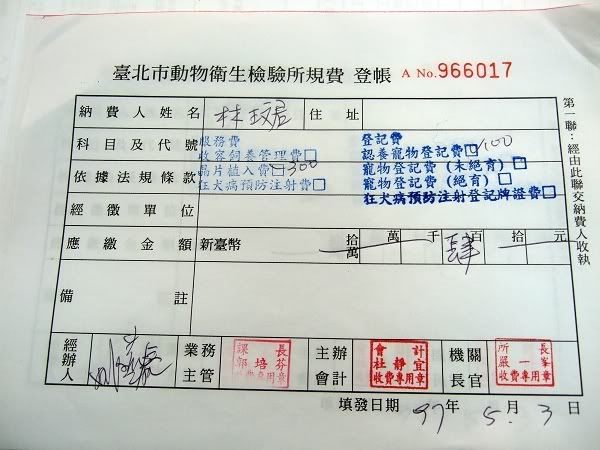 臺北市動物衛生檢驗所規費 登帳 A No.966017
納費人姓名 林玟君 住址
科目及代號
服務費
收容飼養管理費□
晶片植入費□300
狂犬病預防注射費□
登記費
認養寵物登記費□100
寵物登記費(未絕育)□
寵物登記費(絕育)□
狂犬病預防注射登記牌證費□
依據法規條款
經徵單位
應繳金額 新臺幣 拾萬 萬 千 肆百 拾 元
備註
經辦人
業務主管 課長 郭培芬 收費專用章
主辦會計 會計 杜靜宜 收費專用章
機關長官 所長 嚴一峯 收費專用章
填發日期 97年 5月 3日
第一聯:經由此聯交納費人收執